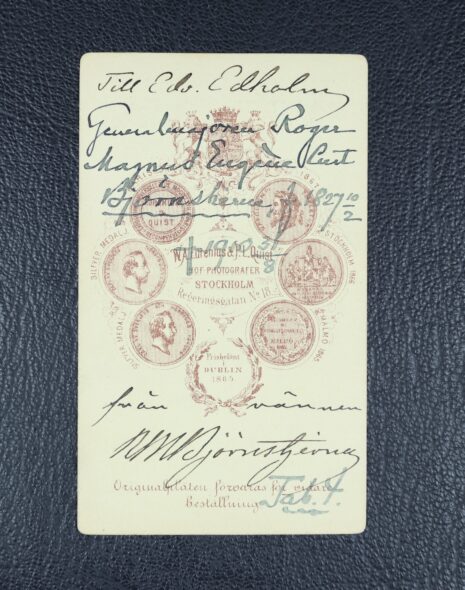 Till Edv. Edholm
Generalmajoren Roger
Magnus Eugène Curt
Björnstjerna f. 1827 10/2
† 1903 31/8
SILFVER MEDALJ
QUIST
W.A. Eurenius & P.L. Quist
HOF PHOTOGRAFER
STOCKHOLM
Regeringsgatan No 18
STOCKHOLM 1866
SILFVER MEDALJ
MALMÖ 1865
MALMÖ
Prisbelönt
i
DUBLIN
1865.
från vännen
RMBjörnstjerna
Originalplåten förvaras för vidare
beställning
Tab. 7.